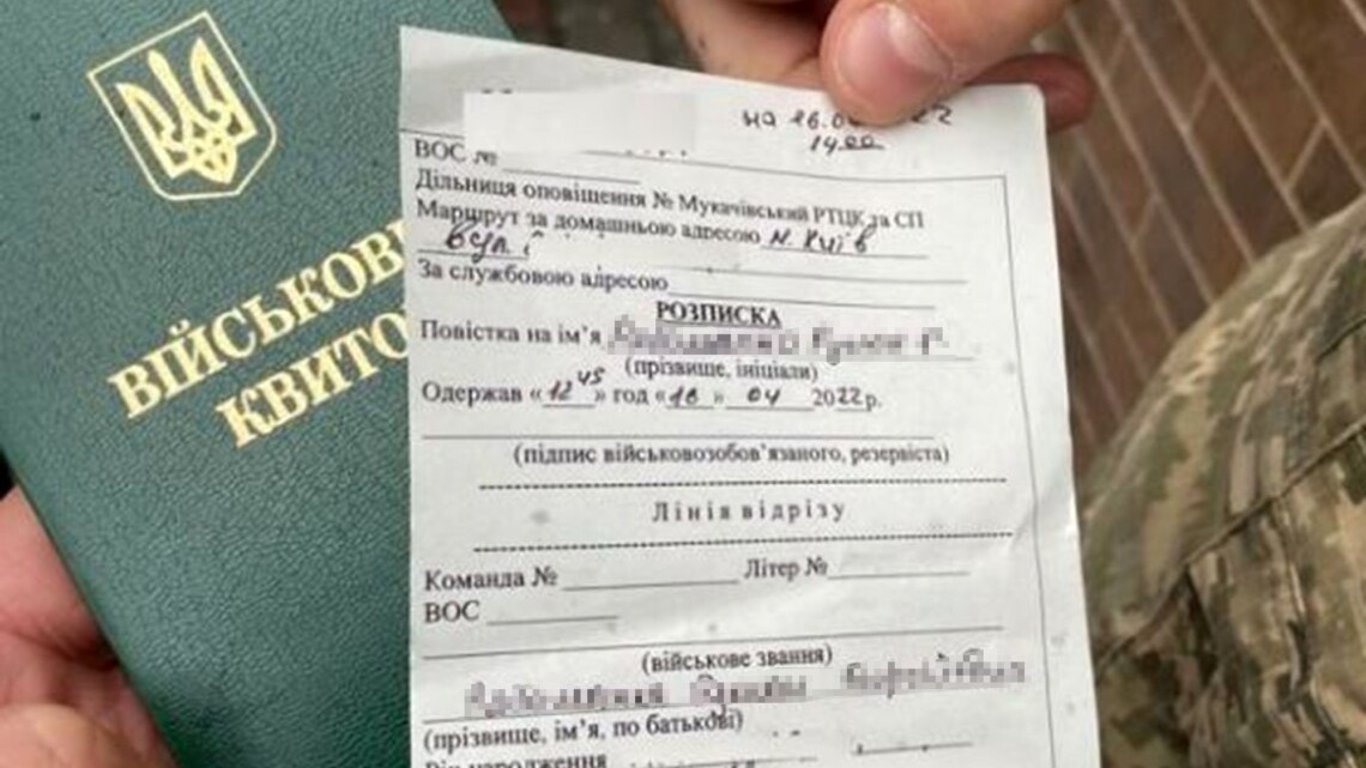 ВІЙСЬКОВ
КВИТО
на
14 00
ВОС №
Дільниця оповіщення № Мукачівський РТЦК та СП
Маршрут за домашньою адресою м. Київ
вул
За службовою адресою
РОЗПИСКА
Повістка на ім’я
(прізвище, ініціали)
Одержав «12 45» год «16» 04 2022 р.
(підпис військовозобов’язаного, резервіста)
Лінія відрізу
Команда № Літер №
ВОС
(військове звання)
(прізвище, ім’я, по батькові)
Рік народження